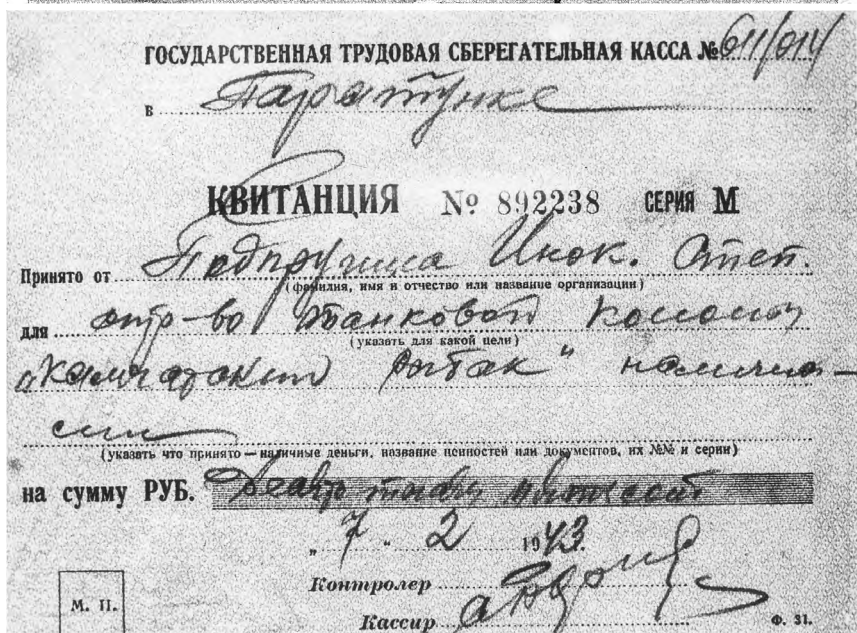 ГОСУДАРСТВЕННАЯ ТРУДОВАЯ СБЕРЕГАТЕЛЬНАЯ КАССА № 611/014
в Паратунке
КВИТАНЦИЯ № 892238 СЕРИЯ М
Принято от Подпругина Инок. Степ.
(фамилия, имя и отчество или название организации)
для стр-во танковой колонны
(указать для какой цели)
„Камчатский рыбак“ наличны-
ми
(указать что принято — наличные деньги, название ценностей или документов, их №№ и серии)
на сумму РУБ. тысяч пятьсот
„ 7 “ 2 1943.
Контролер
Кассир
М. П.
Ф. 31.